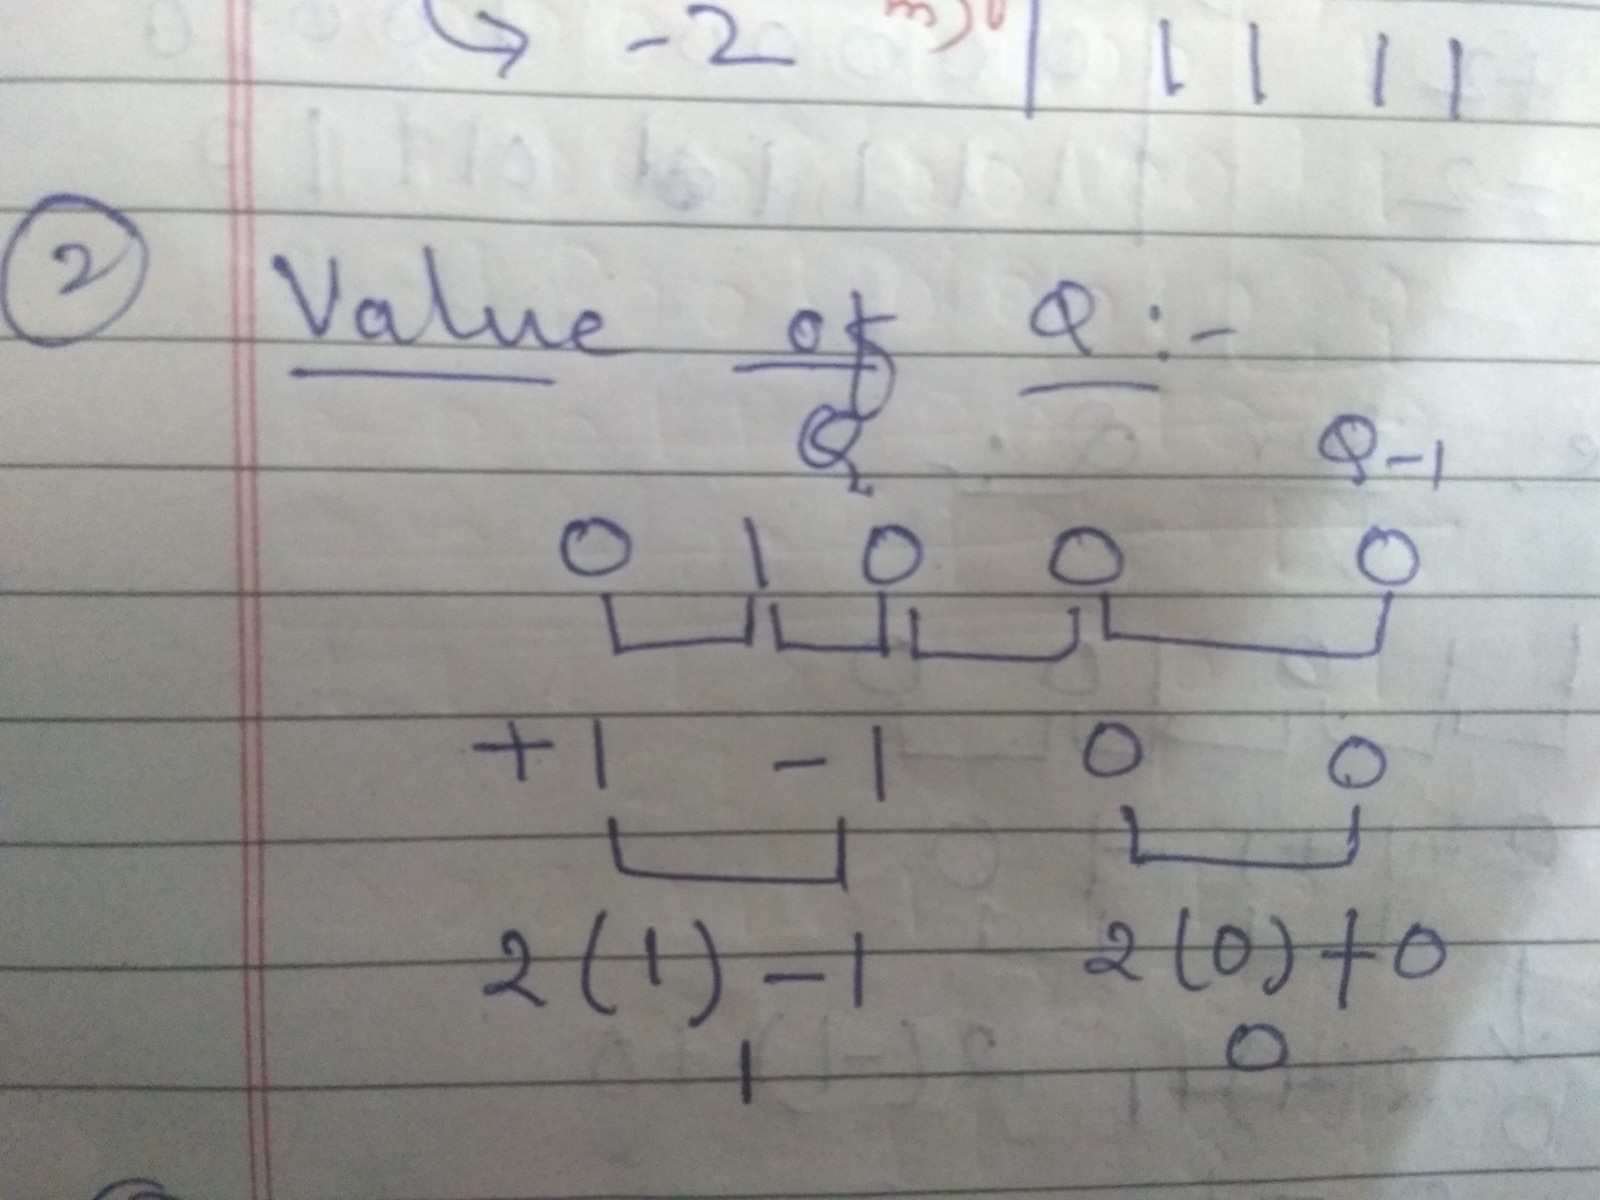 -2 1 1 1 1
2 Value of Q :-
Q Q-1
0 1 0 0 0
+1 -1 0 0
2(1)-1 2(0)+0
1 0